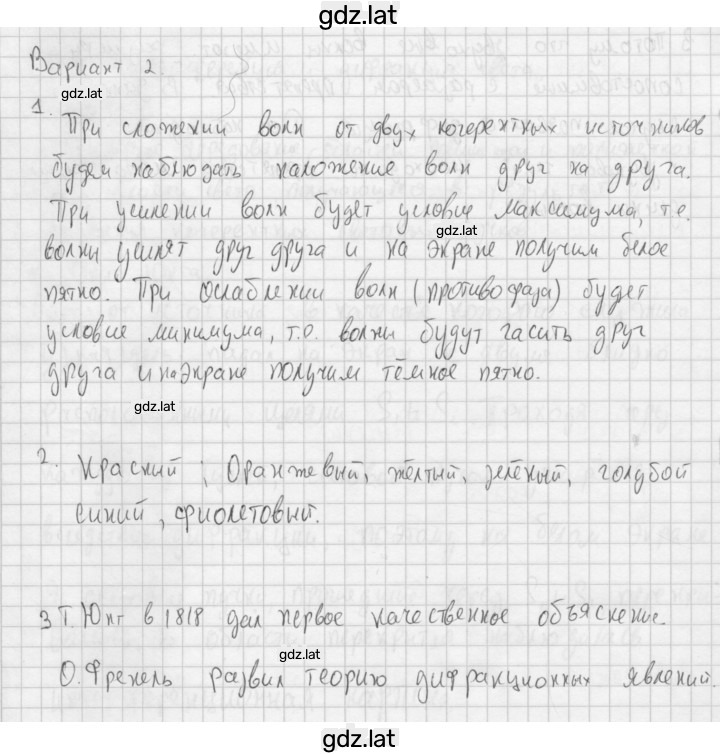 gdz.lat
Вариант 2.
gdz.lat
1. При сложении волн от двух когерентных источников
будем наблюдать наложение волн друг на друга.
При усилении волн будет условие максимума, т.е.
gdz.lat
волны усилят друг друга и на экране получим белое
пятно. При ослаблении волн (противофаза) будет
условие минимума, т.о. волны будут гасить друг
друга и на экране получим тёмное пятно.
gdz.lat
2. Красный, Оранжевый, жёлтый, зелёный, голубой
синий, фиолетовый.
3 Т. Юнг в 1818 дал первое качественное объяснение.
gdz.lat
О. Френель развил теорию дифракционных явлений.
gdz.lat